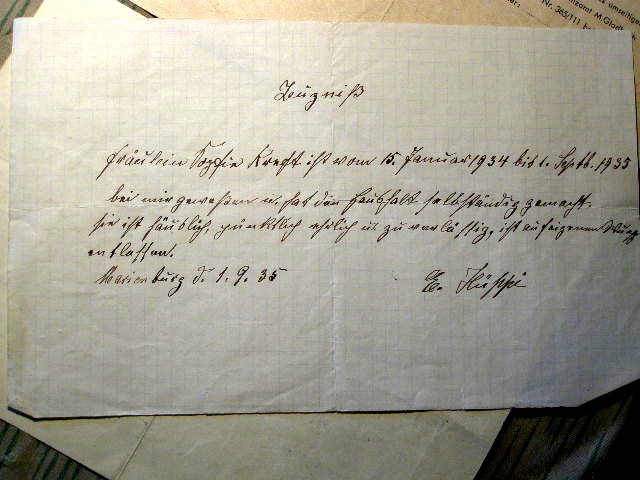 umseitiger
amt M.Glad
Nr. 365/111 b
Zeugniß
Fräulein Sophie Kreft ist vom 15. Januar 1934 bis 1. Septb. 1935
bei mir gewesen u. hat den Haushalt selbständig gemacht.
sie ist säublich, pünktlich ehrlich u. zuverlässig, ist auf eigenen Wunsch
entlassen.
Marienburg d. 1. 9. 35
E.